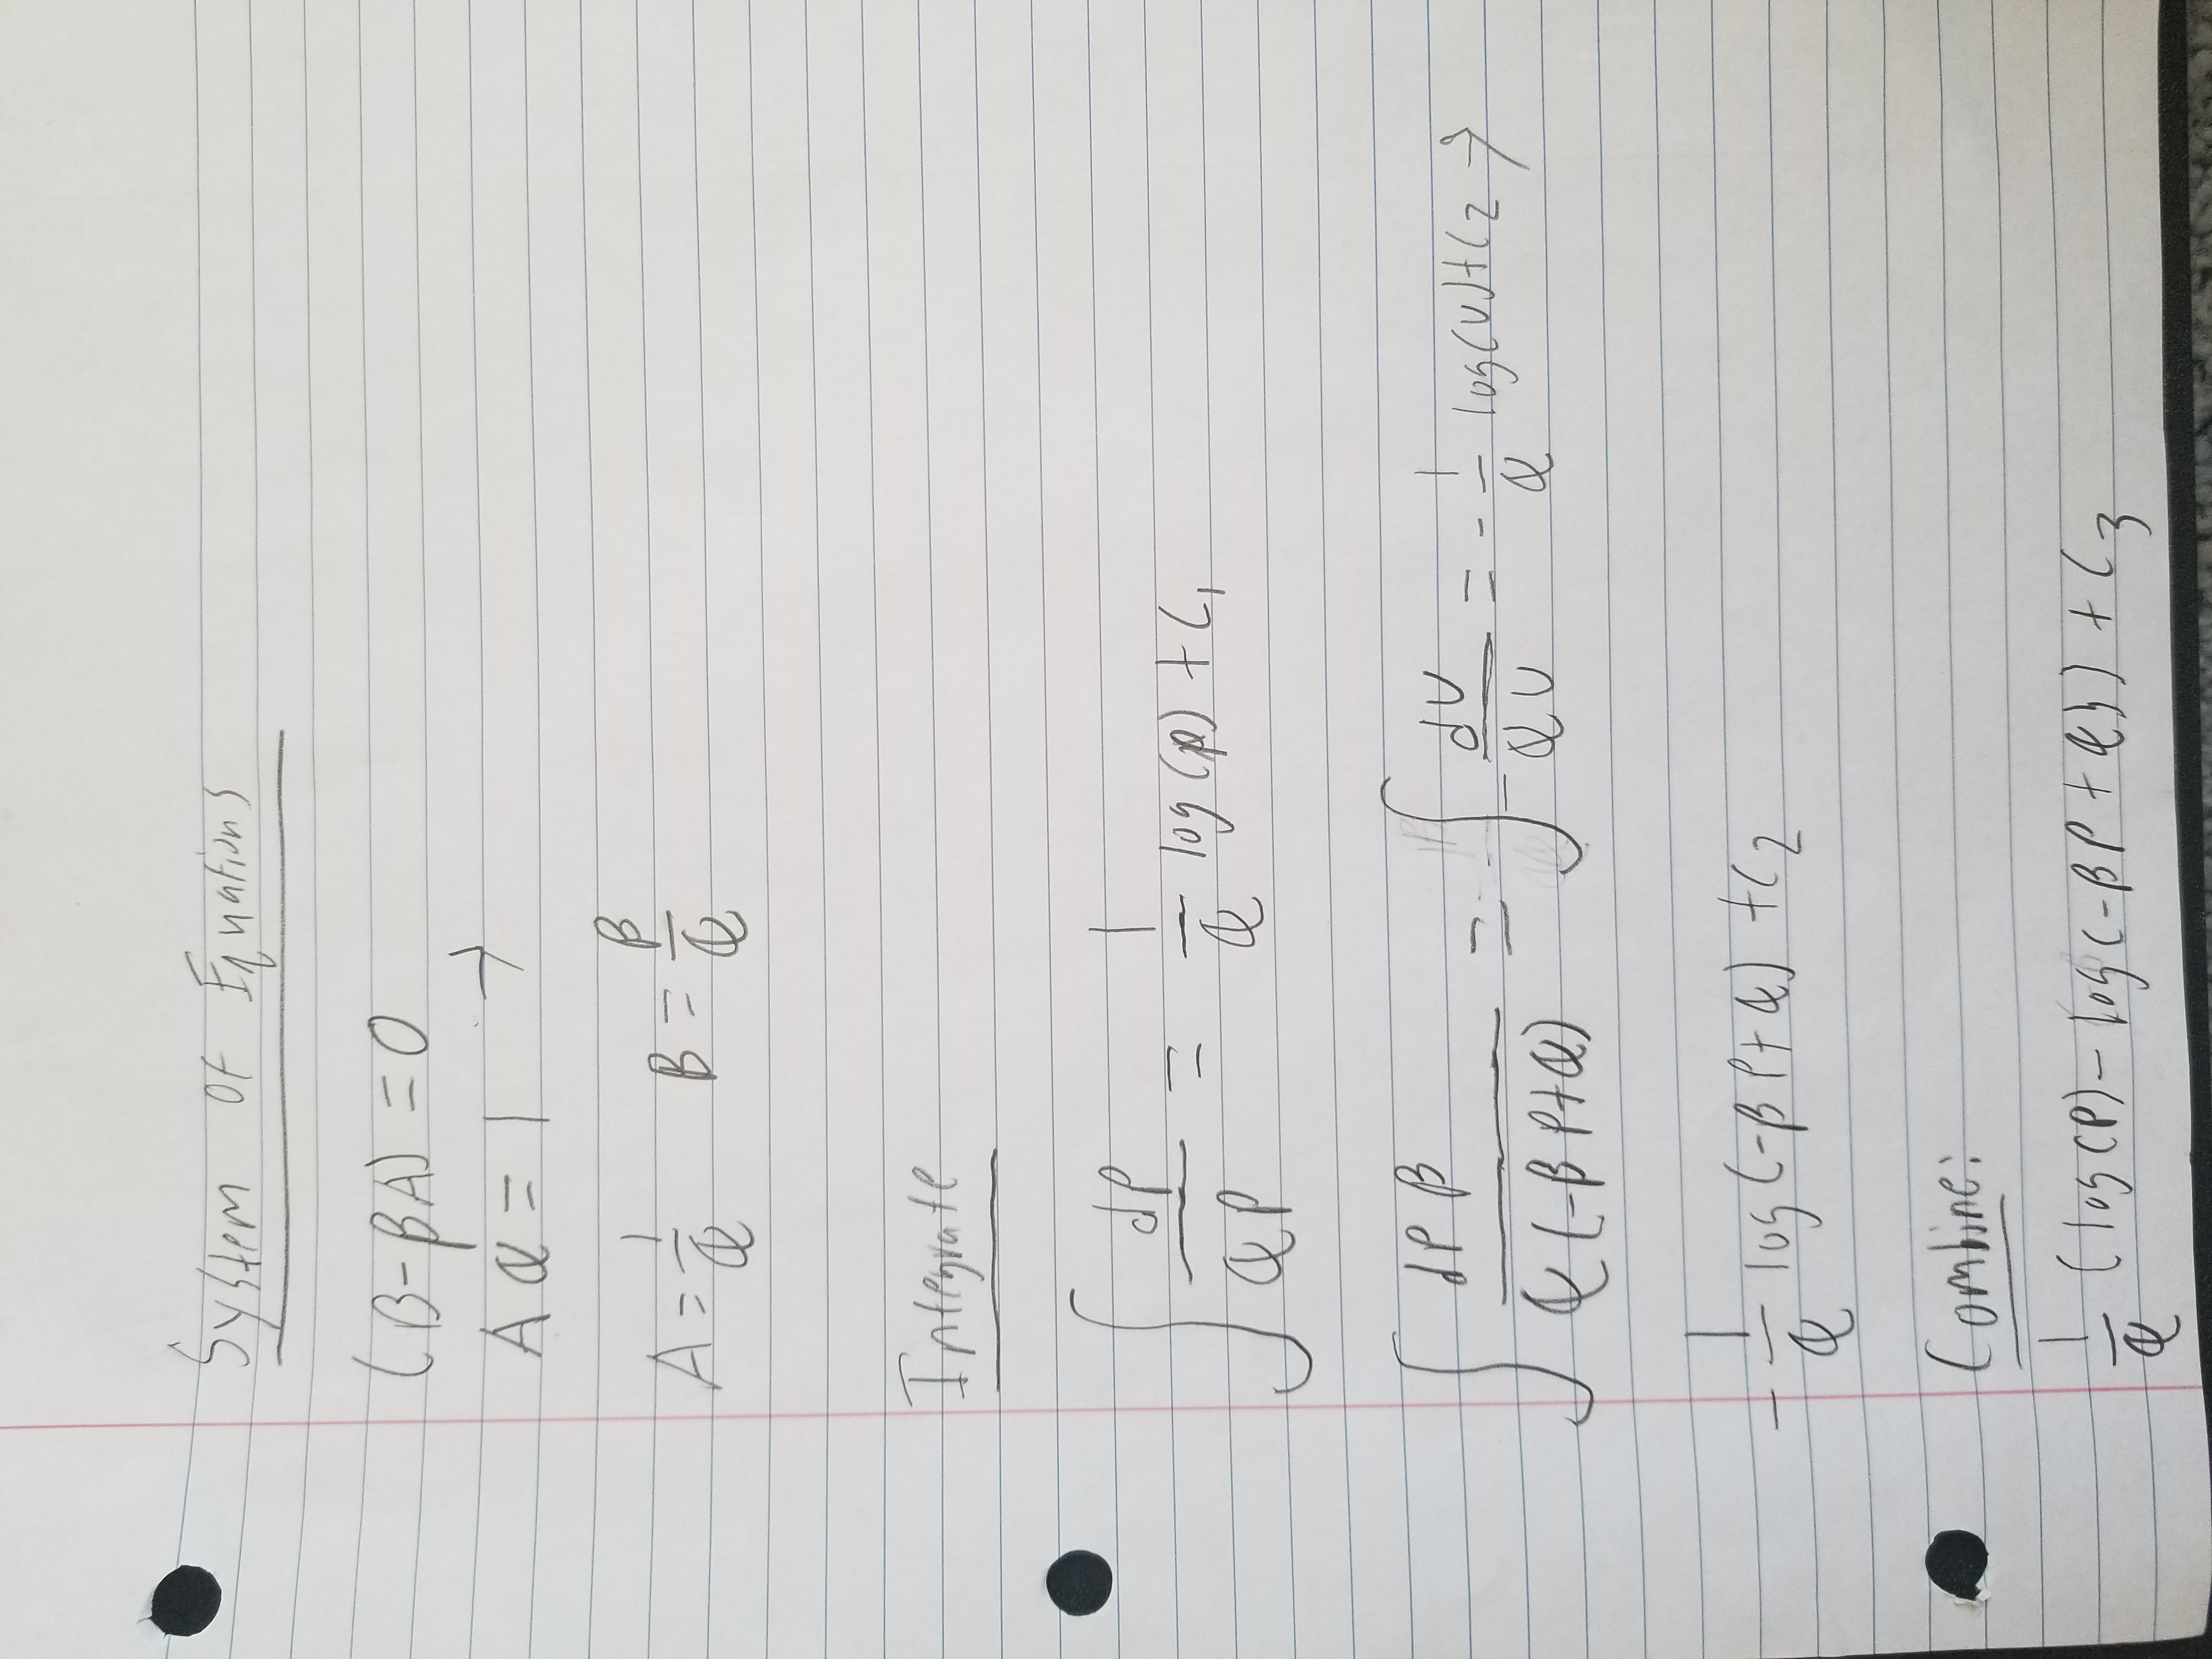 System of Equations
(B-βA) = 0
Aα = 1 →
A = 1/α B = β/α
Integrate
∫ dP/(αP) = 1/α log(P) + C₁
∫ dP β/(α(-βP+α)) = ∫ - dU/(αU) = - 1/α log(U) + C₂ →
- 1/α log(-βP+α) + C₂
Combine:
1/α (log(P) - log(-βP + α)) + C₃